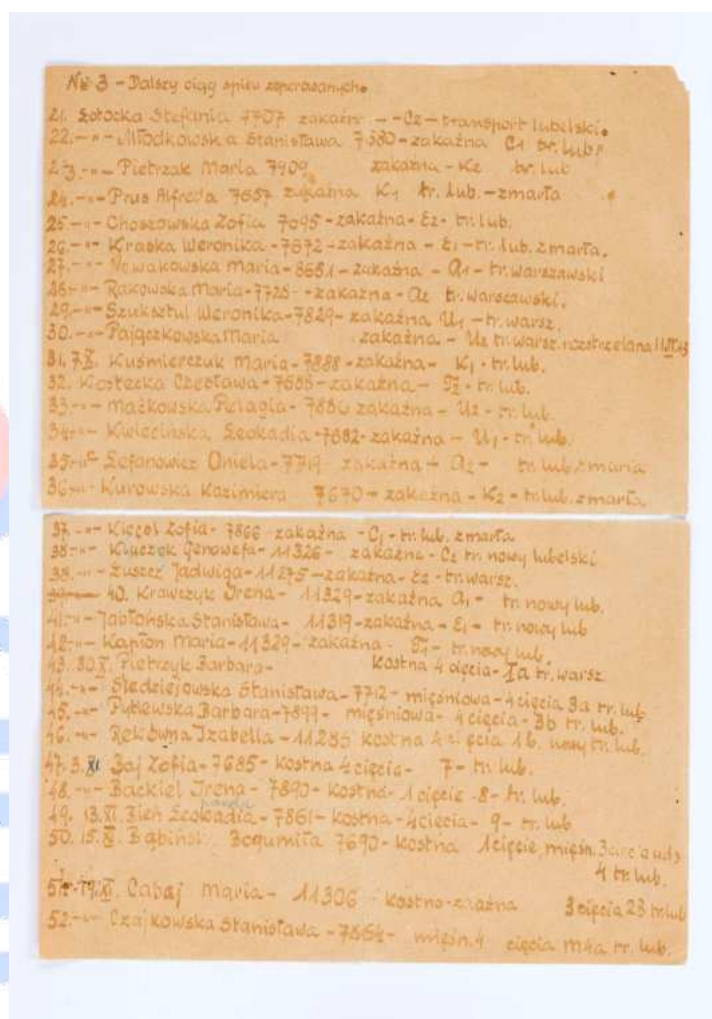 № 3 - Dalszy ciąg spisu zoperowanych.
21. Łotocka Stefania 7707 zakaźn - - C2 - transport lubelski.
22. -"- Młodkowska Stanisława 7380 - zakaźna C1 tr. lub.
23. -"- Pietrzak Maria 7909 zakaźna - K2 tr. lub
24. -"- Prus Alfreda 7687 zakaźna K1 tr. lub. - zmarła
25 -"- Choszowska Zofia 7695 - zakaźna - E2 - tr. lub.
26 -"- Kraska Weronika - 7672 - zakaźna - E1 - tr. lub. zmarła.
27. -"- Nowakowska Maria - 8651 - zakaźna - A1 - tr. warszawski
28 -"- Rakowska Maria - 7725 - - zakaźna - A2 tr. warszawski.
29. -"- Szuksztul Weronika - 7829 - zakaźna U1 - tr. warsz.
30. -"- Pajączkowska Maria zakaźna - U2 tr. warsz. rozstrzelana
31. 7.X. Kuśmierczuk Maria - 7888 - zakaźna - K1 - tr. lub.
32. Kostecka Czesława - 7655 - zakaźna - T2 - tr. lub.
33. -"- Maćkowska Pelagia - 7886 zakaźna - U2 - tr. lub.
34 -"- Kwiecińska Leokadia - 7682 - zakaźna - U1 - tr. lub.
35 -"- Lefanowicz Aniela - 7719 - zakaźna - A2 - tr. lub. zmarła
36 -"- Kurowska Kazimiera 7670 - zakaźna - K2 - tr. lub. zmarła
37. -"- Kiecol Zofia - 7866 zakaźna - C1 - tr. lub. zmarła
38 -"- Kluczek Genowefa - 11326 - zakaźna - C2 tr. nowy lubelski
38. -"- Łuszcz Jadwiga - 11275 - zakaźna - E2 - tr. warsz.
40. Krawczyk Irena - 11329 - zakaźna A1 - tr. nowy lub.
41. -"- Jabłońska Stanisława - 11319 - zakaźna - E1 - tr. nowy lub
42. -"- Kapłon Maria - 11329 - zakaźna - T1 - tr. nowy lub.
43. 30.X. Pietrzyk Barbara - kostna 4 cięcia - Ia tr. warsz
44. -"- Śledziejowska Stanisława - 7712 - mięśniowa - 4 cięcia 3a tr. lub
45. -"- Pytlewska Barbara - 7899 - mięśniowa - 4 cięcia - 3b tr. lub.
46. -"- Rekówna Izabella - 11285 kostna 4 cięcia 1b. nowy tr. lub.
47. 3.XI Baj Zofia - 7685 - kostna 4 cięcia - 7 - tr. lub.
48. -"- Backiel Irena - 7890 - kostna - 1 cięcie - 8 - tr. lub.
49. 13.XI. Bień Leokadia - 7861 - kostna - 4 cięcia - 9 - tr. lub.
50. 15.XI. Bąbińsk Bogumiła 7690 - kostna 1 cięcie, mięśn. 3
4 tr. lub.
51. 19.XI. Cabaj Maria - 11306 kostno-zaaźna 3 cięcia 23 tr. lub
52. -"- Czajkowska Stanisława - 7864 - mięśn. 4 cięcia M4a tr. lub.